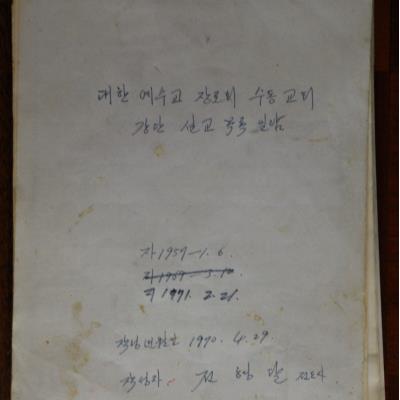 대한 예수교 장로회 수동 교회
강단 선교 목록 일람
자 1959-1. 6.
지 1971. 2. 21.
작성년월일 1970. 4. 29.
작성자 전 달 전도사